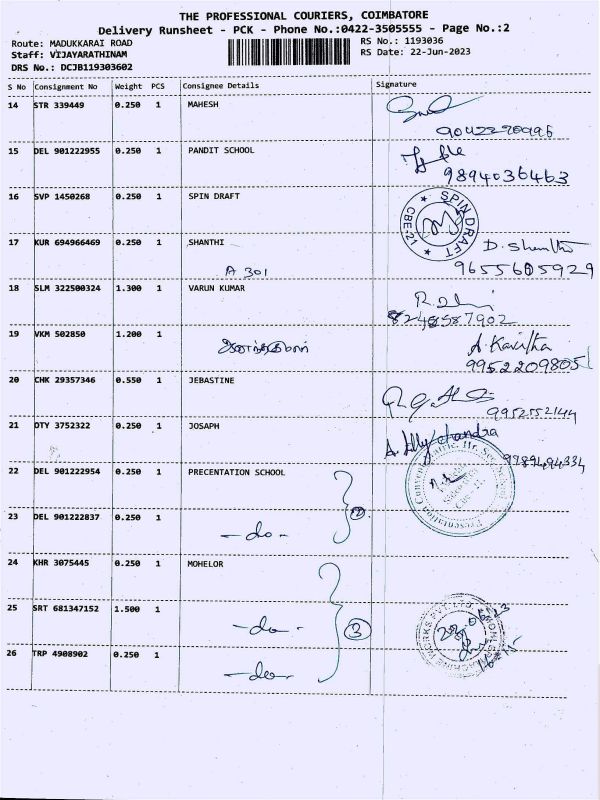 THE PROFESSIONAL COURIERS, COIMBATORE
Delivery Runsheet - PCK - Phone No.:0422-3505555 - Page No.:2
Route: MADUKKARAI ROAD
RS No.: 1193036
Staff: VIJAYARATHINAM
RS Date: 22-Jun-2023
DRS No.: DCJB119303602
S No Consignment No Weight PCS Consignee Details Signature
14 STR 339449 0.250 1 MAHESH
9042270996
15 DEL 901222955 0.250 1 PANDIT SCHOOL
9894036463
16 SVP 1450268 0.250 1 SPIN DRAFT
SPIN DRAFT
CBE-21
17 KUR 694966469 0.250 1 SHANTHI
D. Shanthi
A 301
9655605929
18 SLM 322500324 1.300 1 VARUN KUMAR
8248587902
19 VKM 502850 1.200 1
ஆனந்தகுமார்
A. Kavitha
9952209805
20 CHK 29357346 0.550 1 JEBASTINE
9952552144
21 DTY 3752322 0.250 1 JOSAPH
22 DEL 901222954 0.250 1 PRECENTATION SCHOOL
23 DEL 901222837 0.250 1
-do-
2
24 KHR 3075445 0.250 1 MOHELOR
25 SRT 681347152 1.500 1
-do-
3
26 TRP 4908902 0.250 1
-do-